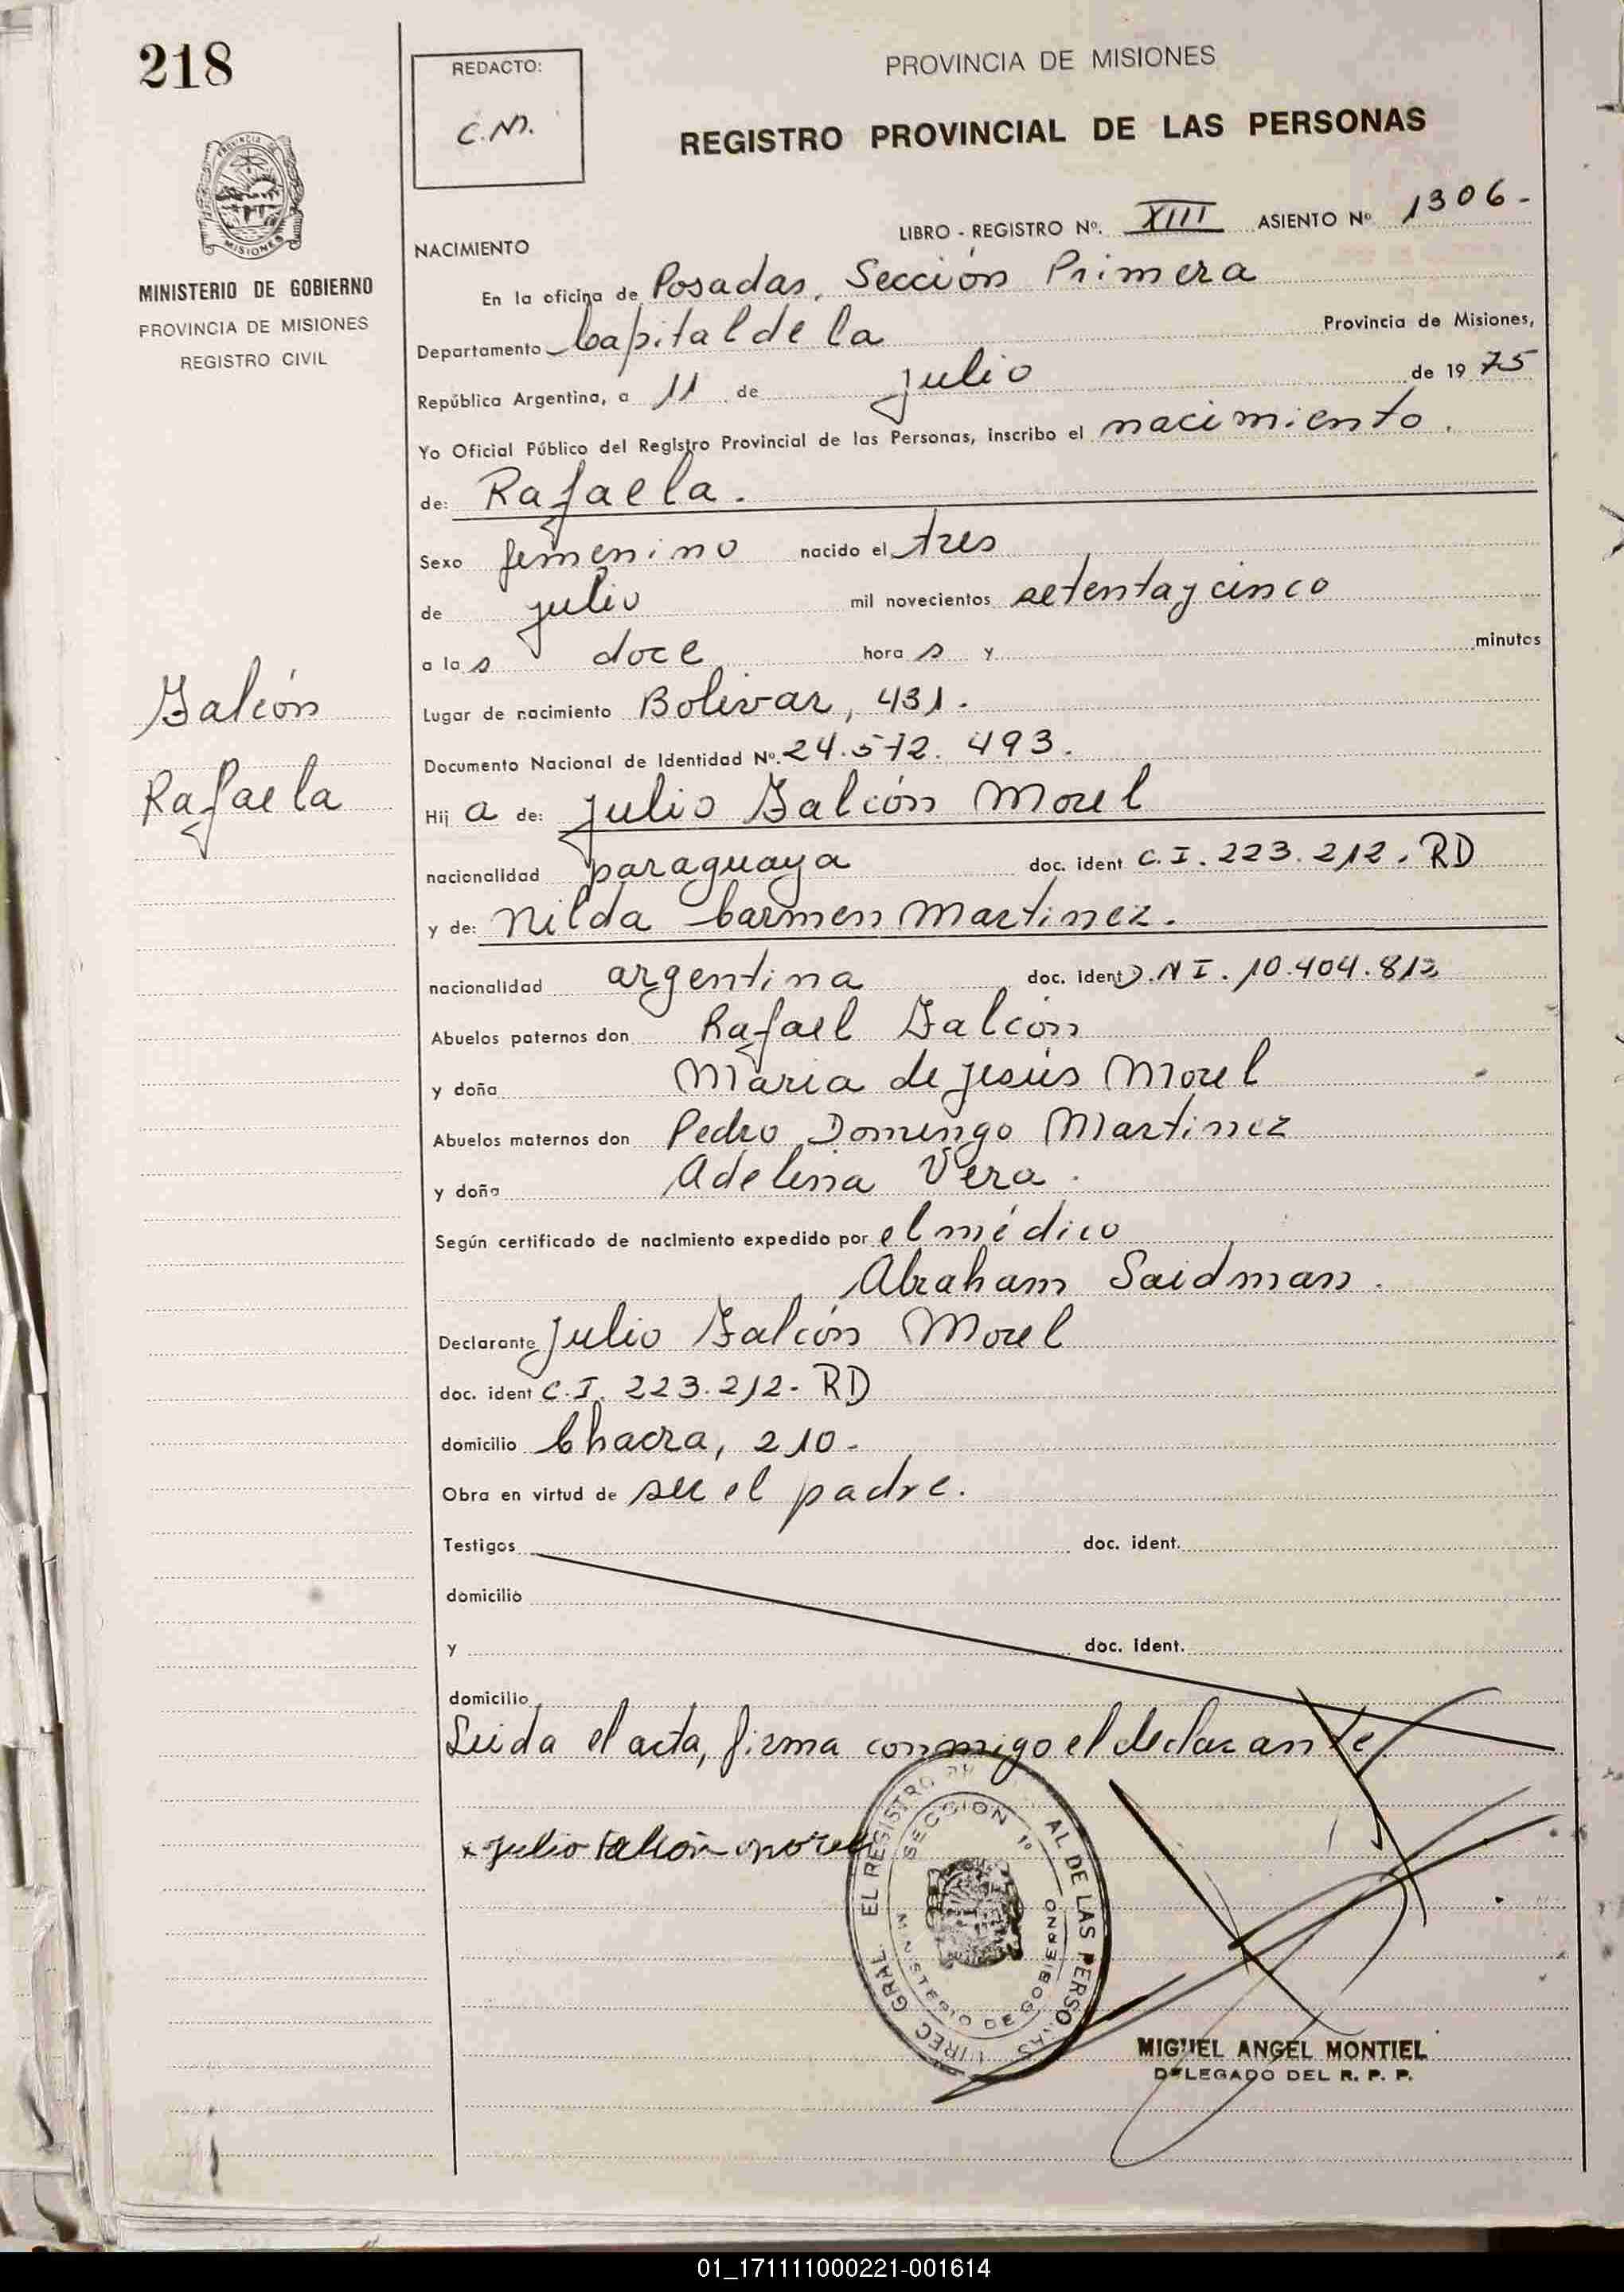 218
REDACTO:
C.M.
PROVINCIA DE MISIONES
REGISTRO PROVINCIAL DE LAS PERSONAS
MISIONES
MINISTERIO DE GOBIERNO
PROVINCIA DE MISIONES
REGISTRO CIVIL
LIBRO - REGISTRO Nº. XIII ASIENTO Nº 1306-
NACIMIENTO
En la oficina de Posadas, Sección Primera
Departamento Capital de la Provincia de Misiones,
República Argentina, a 11 de julio de 1975
Yo Oficial Público del Registro Provincial de las Personas, inscribo el nacimiento.
de: Rafaela.
Sexo femenino nacido el tres
de julio mil novecientos setenta y cinco
a las doce horas y minutos
Galeón
Rafaela
Lugar de nacimiento Bolivar, 431.
Documento Nacional de Identidad Nº. 24.572.493.
Hija de: Julio Falcón Morel
nacionalidad paraguaya doc. ident C.I. 223.212. RD
y de: Nilda Carmen Martinez.
nacionalidad argentina doc. ident D.N I. 10.404.812
Abuelos paternos don Rafael Falcón
y doña Maria de Jesús Morel
Abuelos maternos don Pedro Domingo Martinez
y doña Adelina Vera.
Según certificado de nacimiento expedido por el médico
Abraham Saidman.
Declarante Julio Falcón Morel
doc. ident C.I. 223.212- RD
domicilio Chacra, 210-
Obra en virtud de ser el padre.
Testigos doc. ident.
domicilio
y doc. ident.
domicilio
Leida el acta, firma conmigo el declarante
x Julio Falcón Morel
EL REGISTRO AL DE LAS PERSONAS
SECCION 1º
MINISTERIO DE GOBIERNO
DIREC GRAL
MIGUEL ANGEL MONTIEL
DELEGADO DEL R. P. P.
01_171111000221-001614